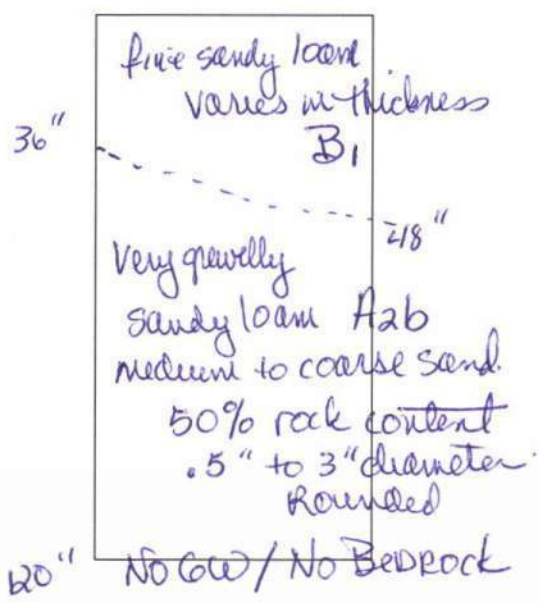 fine sandy loam
varies in thickness
36"
B1
48"
Very gravelly
sandy loam A2b
medium to coarse sand.
50% rock content
.5" to 3" diameter.
Rounded
120" No GW / No BEDROCK